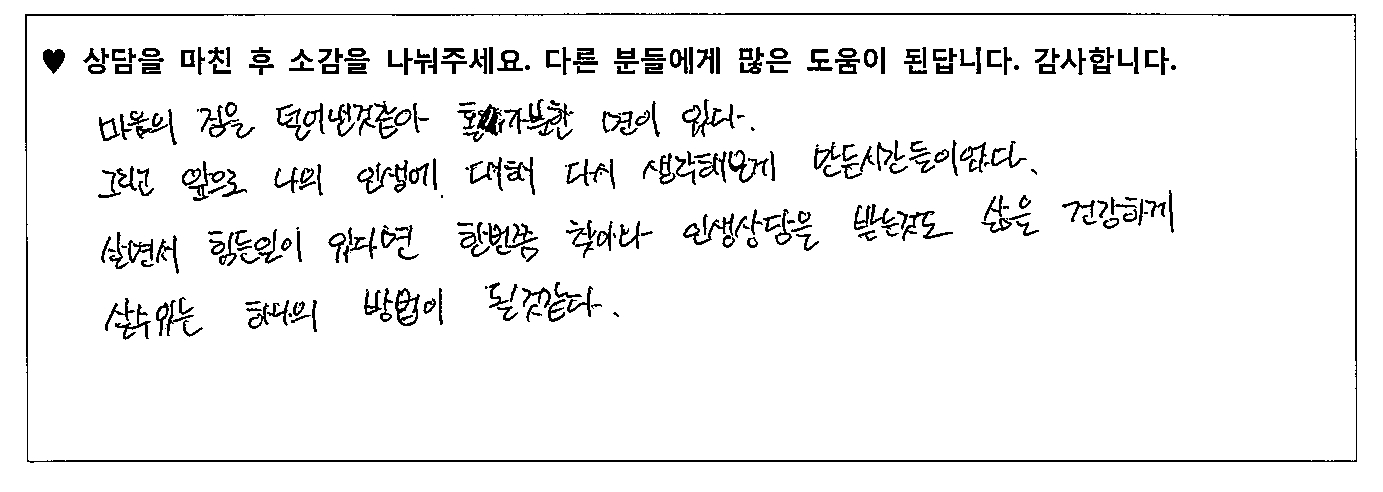 ♥ 상담을 마친 후 소감을 나눠주세요. 다른 분들에게 많은 도움이 된답니다. 감사합니다.
마음의 짐을 덜어낸것같아 홀가분한 면이 있다.
그리고 앞으로 나의 인생에 대해 다시 생각해보게 만든시간들이었다.
살면서 힘든일이 있다면 한번쯤 찾아나 인생상담을 받는것도 삶을 건강하게
살수있는 하나의 방법이 될것같다.